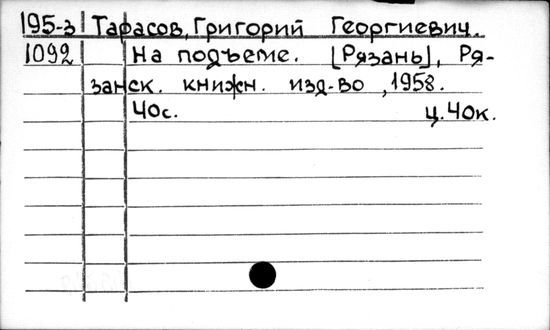 195-3 Тарасов, Григорий Георгиевич.
1092 На подъеме. [Рязань], Ря-
занск. книжн. изд-во, 1958.
40с. ц. 40к.